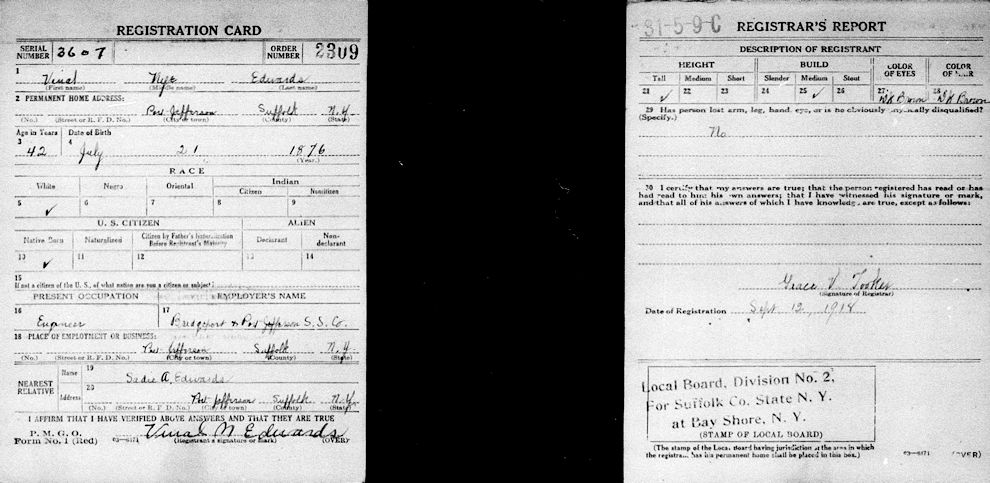 REGISTRATION CARD
SERIAL NUMBER 3607 ORDER NUMBER 2309
1 Vinal Nye Edwards
(First name) (Middle name) (Last name)
2 PERMANENT HOME ADDRESS:
Port Jefferson Suffolk N.Y
(No.) (Street or R. F. D. No.) (City or town) (County) (State)
Age in Years Date of Birth
3 4
42 July 21 1876
(Year.)
RACE
White Negro Oriental Indian
Citizen Noncitizen
5 ✓ 6 7 8 9
U. S. CITIZEN ALIEN
Native Born Naturalized Citizen by Father's Naturalization Before Registrant's Majority Declarant Non-declarant
10 ✓ 11 12 13 14
15
If not a citizen of the U. S., of what nation are you a citizen or subject?
PRESENT OCCUPATION EMPLOYER'S NAME
16 Engineer 17 Bridgeport & Port Jefferson S. S. Co.
18 PLACE OF EMPLOYMENT OR BUSINESS:
Port Jefferson Suffolk N.Y
(No.) (Street or R. F. D. No.) (City or town) (County) (State)
NEAREST RELATIVE
Name 19 Sadie A. Edwards
Address 20 Port Jefferson Suffolk N.Y
(No.) (Street or R. F. D. No.) (City or town) (County) (State)
I AFFIRM THAT I HAVE VERIFIED ABOVE ANSWERS AND THAT THEY ARE TRUE
P. M. G. O.
Form No. 1 (Red) 03—6171 Vinal N Edwards (OVER)
(Registrant's signature or mark)
31-5-9-C
REGISTRAR'S REPORT
DESCRIPTION OF REGISTRANT
HEIGHT BUILD COLOR OF EYES COLOR OF HAIR
Tall Medium Short Slender Medium Stout
21 ✓ 22 23 24 25 ✓ 26 27 Dk Brown 28 Dk Brown
29 Has person lost arm, leg, hand, eye, or is he obviously physically disqualified?
(Specify.)
No
30 I certify that my answers are true; that the person registered has read or has
had read to him his own answers; that I have witnessed his signature or mark,
and that all of his answers of which I have knowledge are true, except as follows:
Grace V. Tooker
(Signature of Registrar)
Date of Registration Sept. 12, 1918
Local Board, Division No. 2,
For Suffolk Co. State N. Y.
at Bay Shore, N. Y.
(STAMP OF LOCAL BOARD)
(The stamp of the Local Board having jurisdiction of the area in which
the registrant has his permanent home shall be placed in this box.)
03—6171 (OVER)